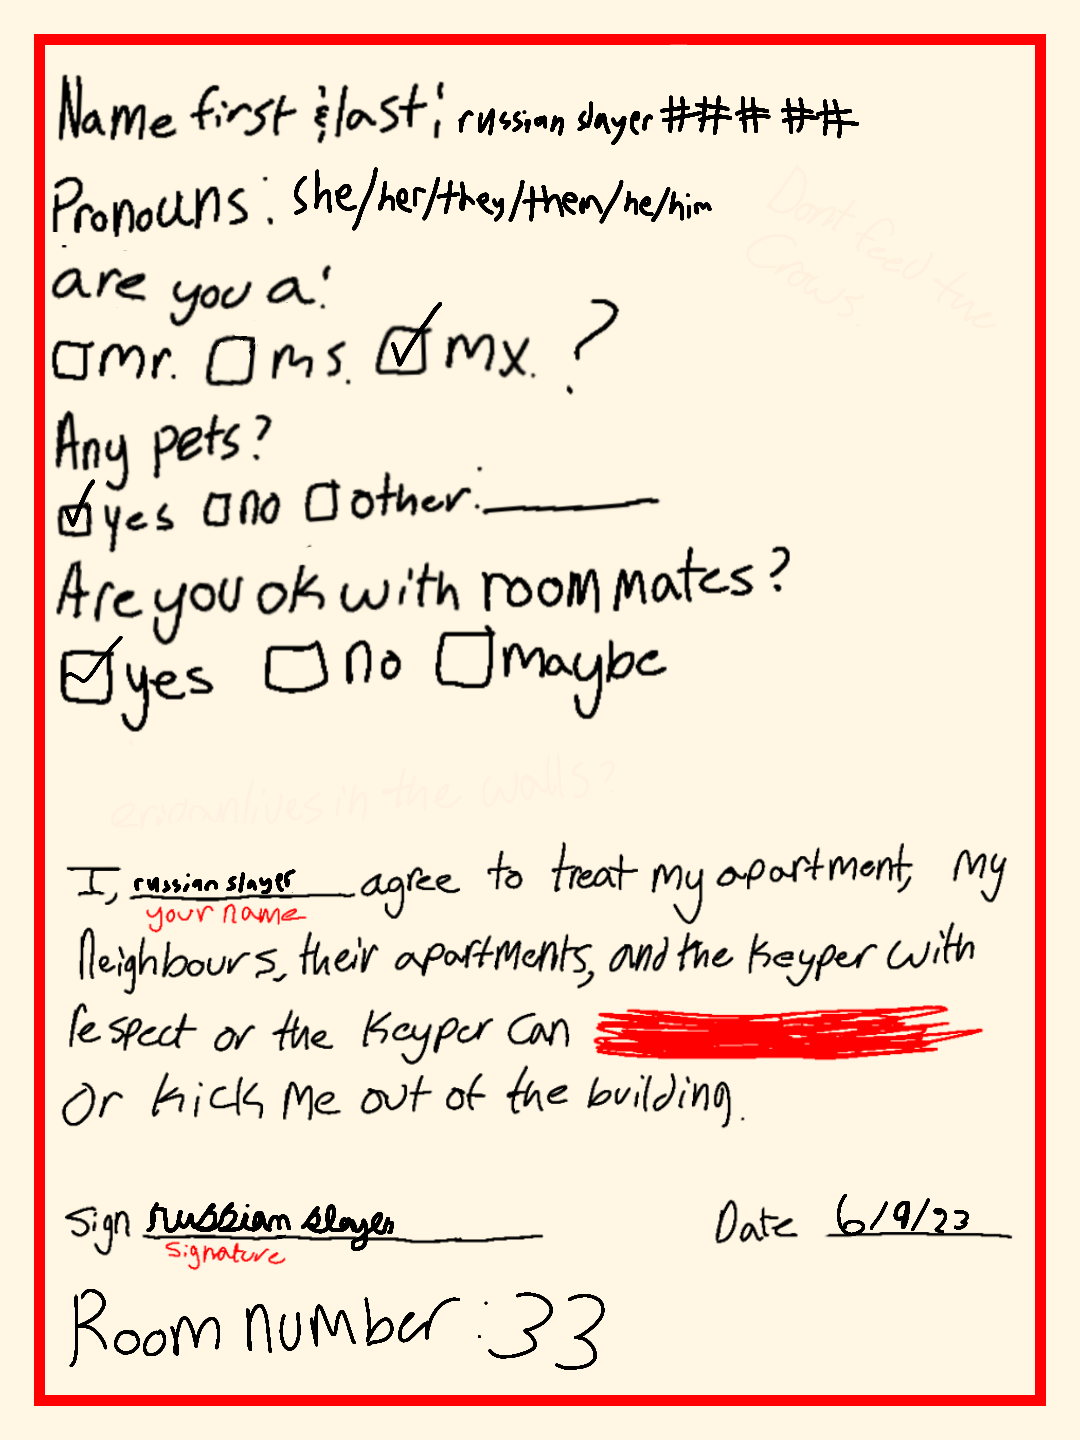 Name first & last: russian slayer ### ##
Pronouns: she/her/they/them/he/him
Dont feed the
Crows.
are you a:
mr. ms. mx. ?
Any pets?
yes no other:
Are you ok with roommates?
yes no maybe
lives in the walls?
I, russian slayer agree to treat my apartment, my
your name
Neighbours, their apartments, and the Keyper with
respect or the Keyper can
Or kick me out of the building.
Sign russian slayer Date 6/9/23
signature
Room number: 33